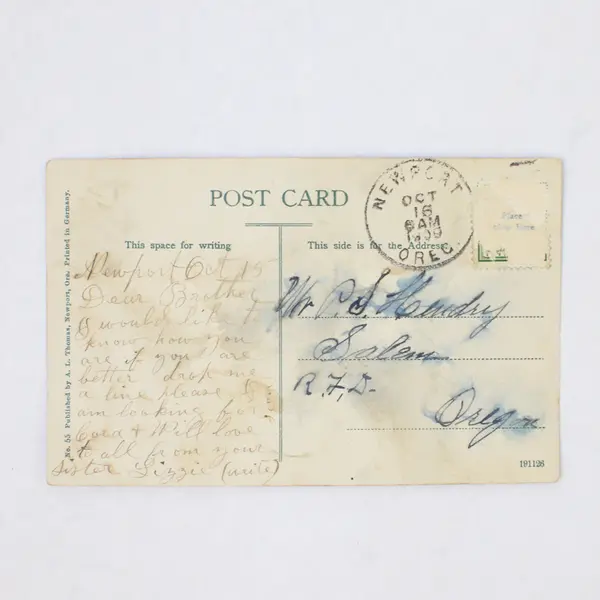 POST CARD
This space for writing
This side is for the Address
No. 55 Published by A. L. Thomas, Newport, Ore. Printed in Germany.
NEWPORT
OCT
16
6AM
1909
OREG.
Place
Here
Newport Oct 15
Dear Brother
I would like to
know how you
are if you are
better drop me
a line please I
am looking for
Cora & Will love
to all from your
sister Lizzie (write)
Mr P. S. Hendry
Salem
R.F.D.
Oregon
191126